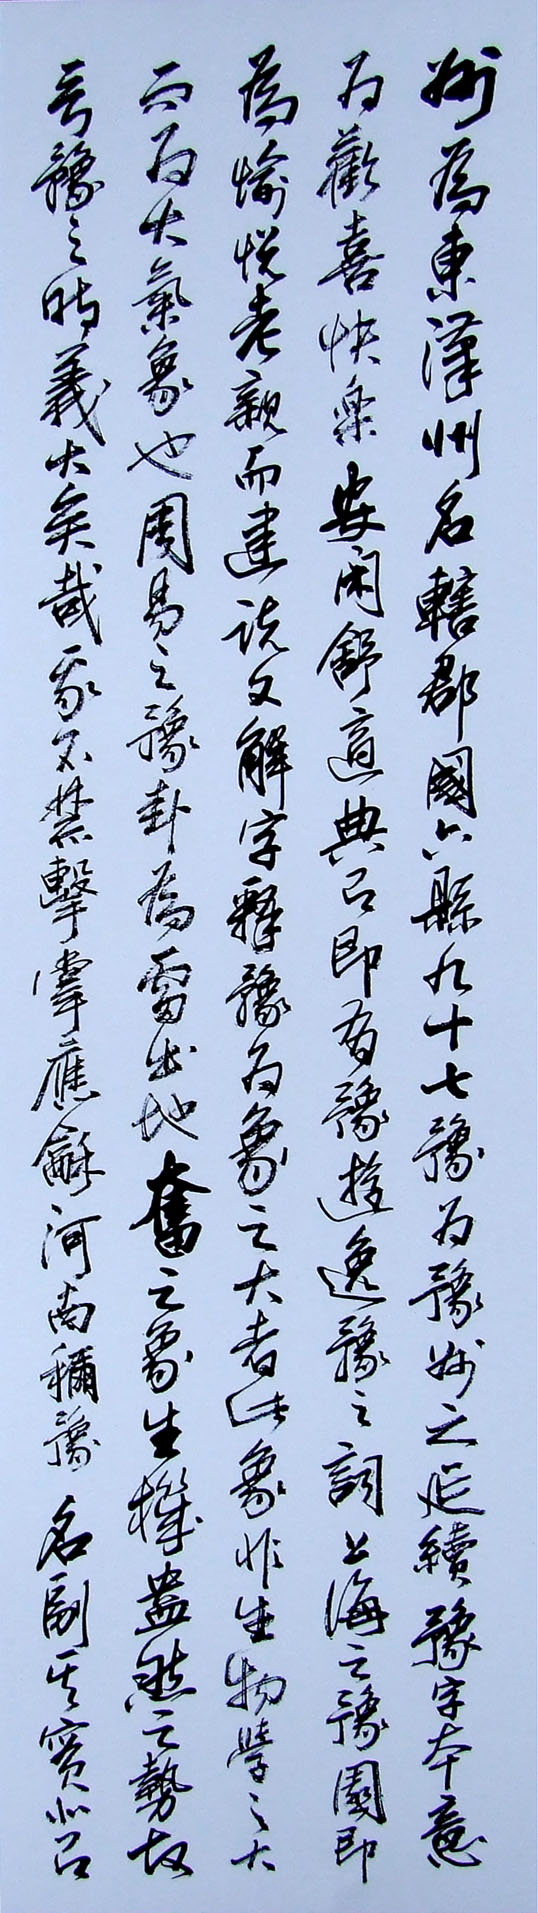 州為東漢州名轄郡國六縣九十七豫為豫州之延續豫字本意
为歡喜快樂安閑舒適典召即有豫遊逸豫之詞上海之豫園即
為愉悅老親而建說文解字釋豫为象之大者此象非生物學之大
而为大氣象也周易之豫卦為雷出地奮之象生機盎然之勢故
言豫之時義大矣哉我不禁擊掌應龢河南稱豫名副其實非